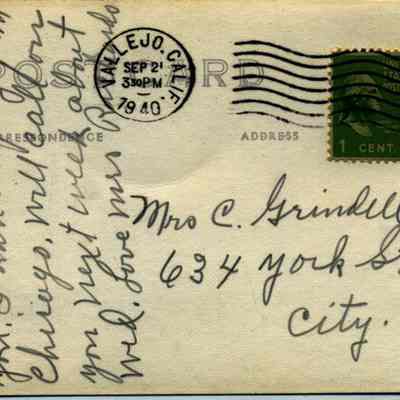 POST CARD
VALLEJO. CALIF.
SEP 21
3 30 PM
1940
CORRESPONDENCE
ADDRESS
1 CENT
Mrs C. Grindell
634 York S
City.
Chicago, will call on
you next week about
Wed. Love Mrs